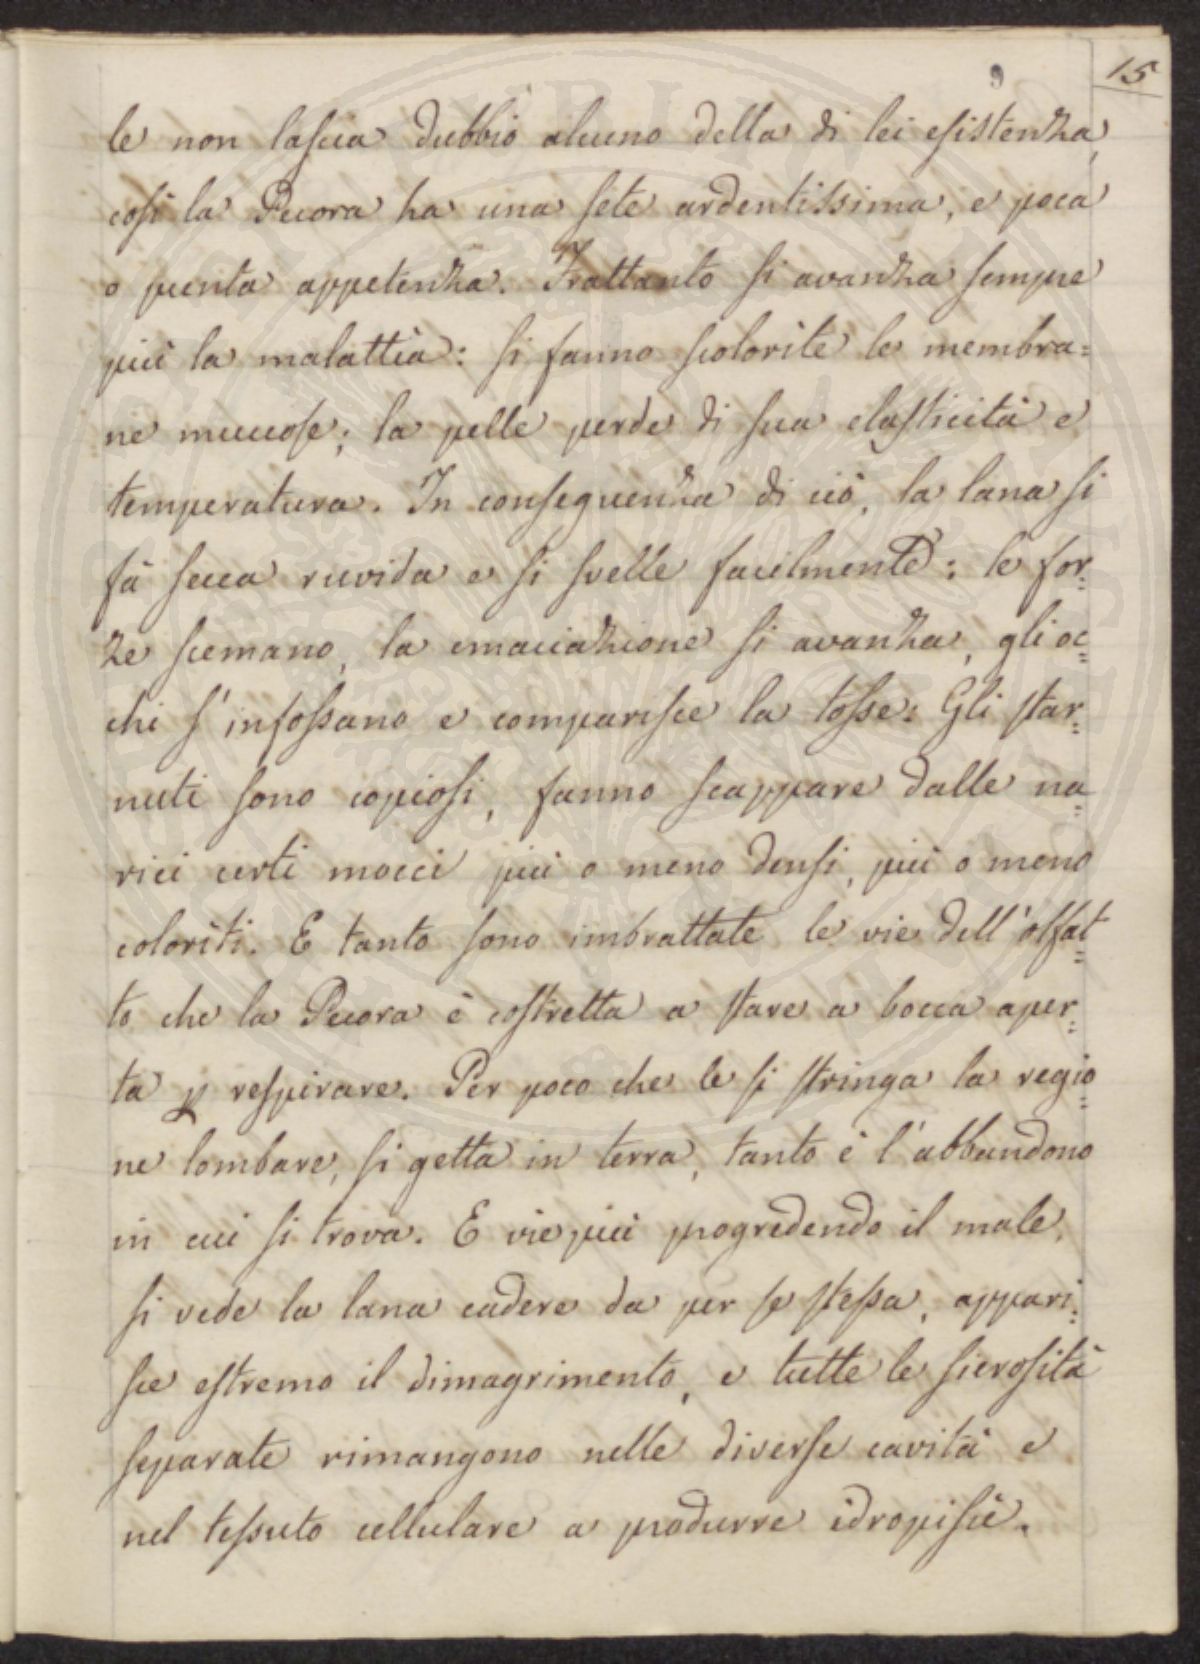 9
15
le non lascia dubbio alcuno della di lei esistenza,
così la Pecora ha una sete ardentissima, e poca
o punta appetenza. Frattanto si avanza sempre
più la malattia: si fanno scolorite le membra=
ne muccose; la pelle perde di sua elasticità e
temperatura. In conseguenza di ciò, la lana si
fà secca ruvida e si svelle facilmente: le for=
ze scemano, la emaciazione si avanza, gli oc=
chi s'infossano e comparisce la tosse: Gli star=
nuti sono copiosi, fanno scappare dalle na=
rici certi mocci più o meno densi, più o meno
coloriti. E tanto sono imbrattate le vie dell'olfat=
to che la Pecora è costretta a stare a bocca aper=
ta p respirare. Per poco che le si stringa la regio=
ne lombare, si getta in terra, tanto è l'abbandono
in cui si trova. E vie più progredendo il male,
si vede la lana cadere da per se stessa, appari=
sce estremo il dimagrimento, e tutte le sierosità
separate rimangono nelle diverse cavità e
nel tessuto cellulare a produrre idropisie.